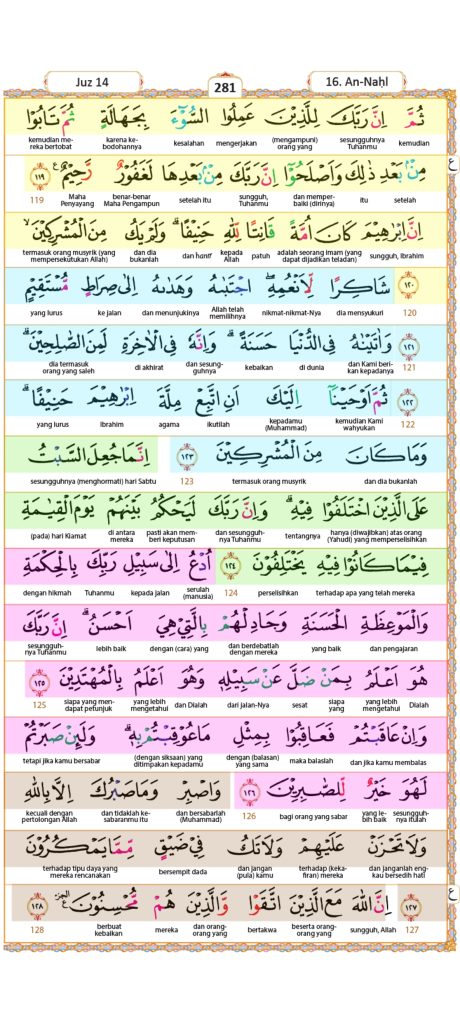 Juz 14
281
16. An-Naḥl
ثُمَّ اِنَّ رَبَّكَ لِلَّذِيْنَ عَمِلُوا السُّوْۤءَ بِجَهَالَةٍ ثُمَّ تَابُوْا
kemudian sesungguhnya Tuhanmu (mengampuni) orang yang mengerjakan kesalahan karena kebodohannya kemudian mereka bertobat
مِنْۢ بَعْدِ ذٰلِكَ وَاَصْلَحُوْٓا اِنَّ رَبَّكَ مِنْۢ بَعْدِهَا لَغَفُوْرٌ رَّحِيْمٌ ࣖ ١١٩
setelah itu dan memperbaiki (dirinya) sungguh, Tuhanmu setelah itu benar-benar Maha Pengampun Maha Penyayang 119
اِنَّ اِبْرٰهِيْمَ كَانَ اُمَّةً قَانِتًا لِّلّٰهِ حَنِيْفًاۗ وَلَمْ يَكُ مِنَ الْمُشْرِكِيْنَۙ
sungguh, Ibrahim adalah seorang imam (yang dapat dijadikan teladan) patuh kepada Allah dan hanif dan dia bukanlah termasuk orang musyrik (yang mempersekutukan Allah)
١٢٠ شَاكِرًا لِّاَنْعُمِهٖۗ اِجْتَبٰىهُ وَهَدٰىهُ اِلٰى صِرَاطٍ مُّسْتَقِيْمٍ
120 dia mensyukuri nikmat-nikmat-Nya Allah telah memilihnya dan menunjukinya ke jalan yang lurus
١٢١ وَاٰتَيْنٰهُ فِى الدُّنْيَا حَسَنَةً ۗوَاِنَّهٗ فِى الْاٰخِرَةِ لَمِنَ الصّٰلِحِيْنَۗ
121 dan Kami berikan kepadanya di dunia kebaikan dan sesungguhnya di akhirat dia termasuk orang yang saleh
١٢٢ ثُمَّ اَوْحَيْنَآ اِلَيْكَ اَنِ اتَّبِعْ مِلَّةَ اِبْرٰهِيْمَ حَنِيْفًاۗ
122 kemudian Kami wahyukan kepadamu (Muhammad) ikutilah agama Ibrahim yang lurus
وَمَا كَانَ مِنَ الْمُشْرِكِيْنَ ١٢٣ اِنَّمَا جُعِلَ السَّبْتُ
dan dia bukanlah termasuk orang musyrik 123 sesungguhnya (menghormati) hari Sabtu
عَلَى الَّذِيْنَ اخْتَلَفُوْا فِيْهِۗ وَاِنَّ رَبَّكَ لَيَحْكُمُ بَيْنَهُمْ يَوْمَ الْقِيٰمَةِ
hanya (diwajibkan) atas orang (Yahudi) yang memperselisihkan tentangnya dan sesungguhnya Tuhanmu pasti akan memberi keputusan di antara mereka (pada) hari Kiamat
فِيْمَا كَانُوْا فِيْهِ يَخْتَلِفُوْنَ ١٢٤ اُدْعُ اِلٰى سَبِيْلِ رَبِّكَ بِالْحِكْمَةِ
terhadap apa yang telah mereka perselisihkan 124 serulah (manusia) kepada jalan Tuhanmu dengan hikmah
وَالْمَوْعِظَةِ الْحَسَنَةِ وَجَادِلْهُمْ بِالَّتِيْ هِيَ اَحْسَنُۗ اِنَّ رَبَّكَ
dan pengajaran yang baik dan berdebatlah dengan mereka dengan (cara) yang lebih baik sesungguhnya Tuhanmu
هُوَ اَعْلَمُ بِمَنْ ضَلَّ عَنْ سَبِيْلِهٖ وَهُوَ اَعْلَمُ بِالْمُهْتَدِيْنَ ١٢٥
Dialah yang lebih mengetahui siapa yang sesat dari jalan-Nya dan Dialah yang lebih mengetahui siapa yang mendapat petunjuk 125
وَاِنْ عَاقَبْتُمْ فَعَاقِبُوْا بِمِثْلِ مَا عُوْقِبْتُمْ بِهٖۗ وَلَىِٕنْ صَبَرْتُمْ
dan jika kamu membalas maka balaslah dengan (balasan) yang sama (dengan siksaan) yang ditimpakan kepadamu tetapi jika kamu bersabar
لَهُوَ خَيْرٌ لِّلصّٰبِرِيْنَ ١٢٦ وَاصْبِرْ وَمَا صَبْرُكَ اِلَّا بِاللّٰهِ
sesungguhnya itulah yang lebih baik bagi orang yang sabar 126 dan bersabarlah (Muhammad) dan tidaklah kesabaranmu itu kecuali dengan pertolongan Allah
وَلَا تَحْزَنْ عَلَيْهِمْ وَلَا تَكُ فِيْ ضَيْقٍ مِّمَّا يَمْكُرُوْنَ
dan janganlah engkau bersedih hati terhadap (kekafiran) mereka dan jangan (pula) kamu bersempit dada terhadap tipu daya yang mereka rencanakan
١٢٧ اِنَّ اللّٰهَ مَعَ الَّذِيْنَ اتَّقَوْا وَّالَّذِيْنَ هُمْ مُّحْسِنُوْنَ ࣖ ١٢٨
127 sungguh, Allah beserta orang-orang yang bertakwa dan orang-orang yang mereka berbuat kebaikan 128